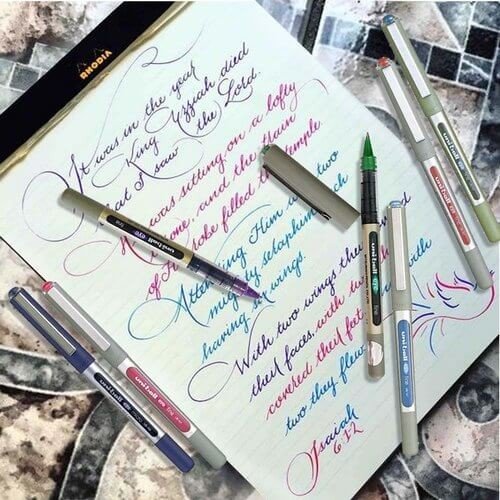 RHODIA
It was in the year
King Uzziah died
I saw the Lord.
was sitting on a lofty
and the train
of filled temple
Attending Him two
mighty seraphim
having wings.
With two wings they
they faces, with
covered they feet with
two they flew
Isaiah
6:1-2
uni-ball eye fine
uni-ball eye fine
uni-ball eye
uni-ball eye
uni-ball eye
uni-ball eye
uni-ball eye